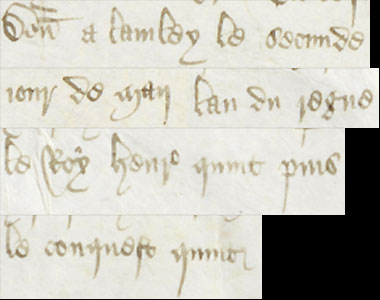 Don a lambey le secunde
iour de maii lan du regne
le Roy henr quint puis
le conquest quint